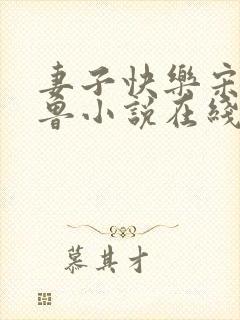 妻子快樂宋
魯小說在綫
慕其才